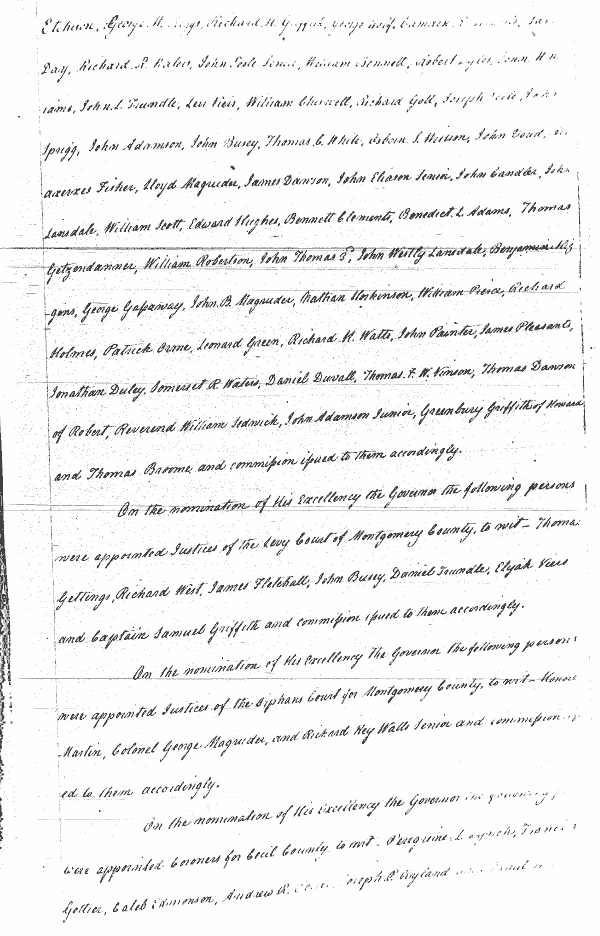 Etcheson, George W. Richard H. Griffith, George Wolf, Camden
Day, Richard R. Waters, John Poole Senior, William Bennett, Robert John H
iams, John L. Trundle, Levi Viers, William Chiswell, Richard Gott, Joseph Poole, John
Sprigg, John Adamson, John Busey, Thomas C. White, Osborn S. Wilson, John
axerxes Fisher, Lloyd Magruder, James Dawson, John Eliason Senior, John Candler, John
Lansdale, William Scott, Edward Hughes, Bennett Clements, Benedict L. Adams, Thomas
Getzendanner, William Robertson, John Thomas 3d, John Westly Lansdale, Benjamin Hig
gons, George Gassaway, John B. Magruder, Nathan Hoskinson, William Pierce, Richard
Holmes, Patrick Orme, Leonard Green, Richard H. Watts, John Painter, James Pleasants,
Jonathan Duley, Somerset R. Waters, Daniel Duvall, Thomas F. W. Vinson, Thomas Dawson
of Robert, Reverend William Sedwick, John Adamson Junior, Greenbury Griffith of Howard
and Thomas Broome, and commission issued to them accordingly.
On the nomination of His Excellency the Governor the following persons
were appointed Justices of the Levy Court of Montgomery County, to wit - Thomas
Gettings, Richard West, James Fletchall, John Busey, Daniel Trundle, Elijah Viers
and Captain Samuel Griffith and commission issued to them accordingly.
On the nomination of His Excellency the Governor the following persons
were appointed Justices of the Orphans Court for Montgomery County, to wit - Honore
Martin, Colonel George Magruder, and Richard Key Watts Senior and commission
ed to them accordingly.
On the nomination of His Excellency the Governor the following
were appointed Coroners for Cecil County to wit - Peregrine L. Lynch, Francis
Gottier, Caleb Edmonson, Andrew R. Joseph P. Cuyland and